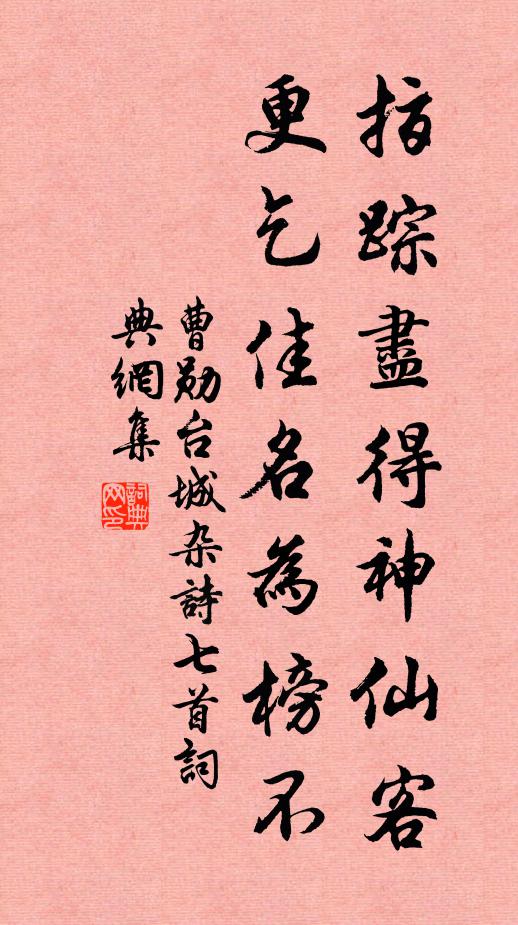 指踪盡得神仙客
更乞佳名為榜不
曹勛台城杂詩七首詞
典網集
詞典网印